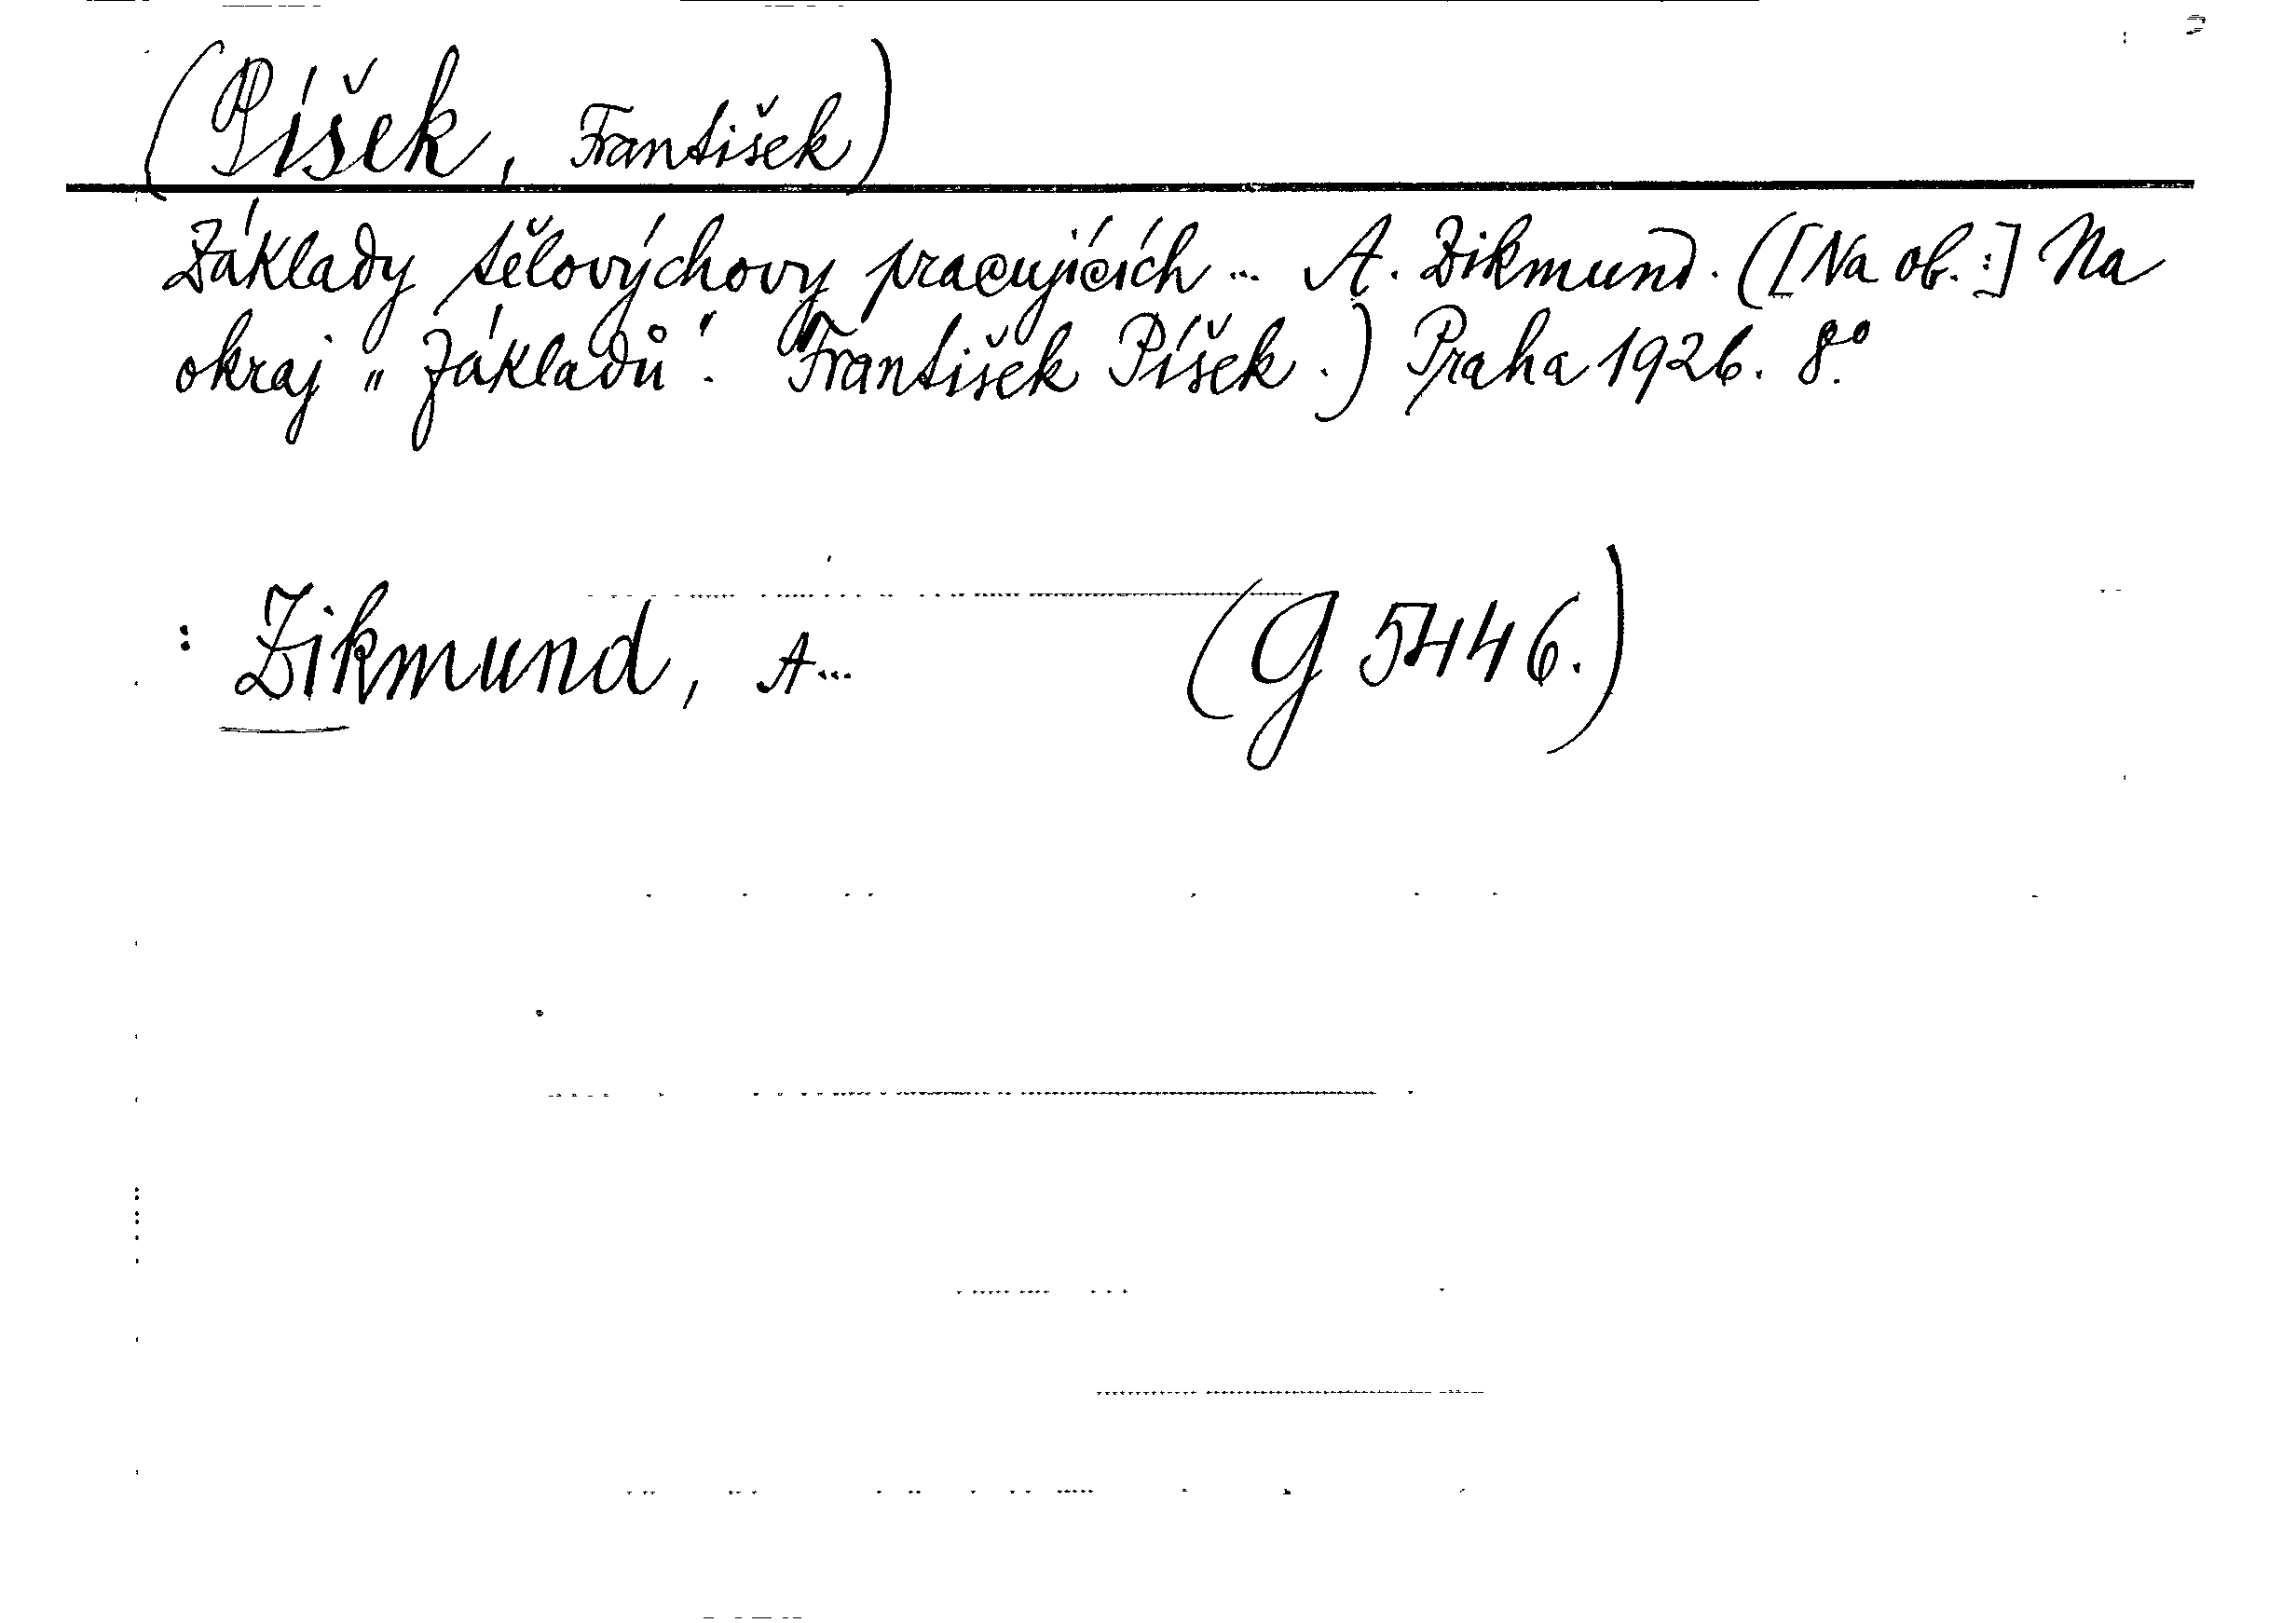 (Píšek, František)
Základy tělovýchovy pracujících ... A. Zikmund. ([Na ob.:] Na
okraj „Základů“. František Píšek.) Praha 1926. 8°.
: Zikmund, A... (G 5446.)